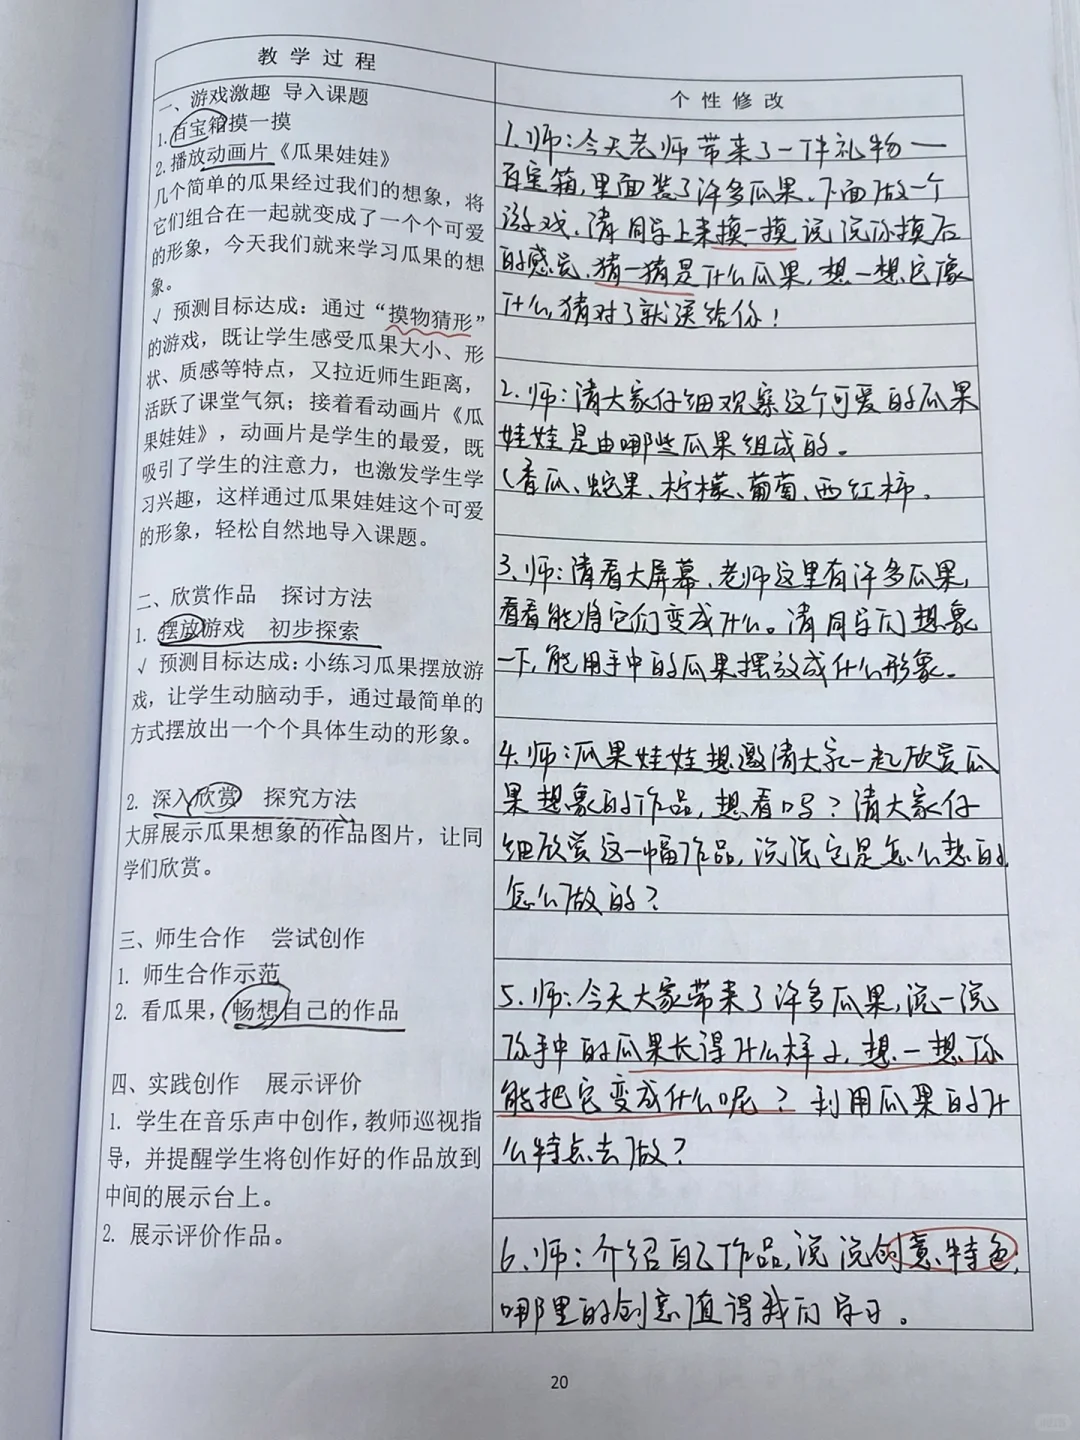 教学过程
一、游戏激趣 导入课题
1.百宝箱摸一摸
2.播放动画片《瓜果娃娃》
几个简单的瓜果经过我们的想象，将
它们组合在一起就变成了一个个可爱
的形象，今天我们就来学习瓜果的想
象。
√ 预测目标达成：通过“摸物猜形”
的游戏，既让学生感受瓜果大小、形
状、质感等特点，又拉近师生距离，
活跃了课堂气氛；接着看动画片《瓜
果娃娃》，动画片是学生的最爱，既
吸引了学生的注意力，也激发学生学
习兴趣，这样通过瓜果娃娃这个可爱
的形象，轻松自然地导入课题。
二、欣赏作品 探讨方法
1. 摆放游戏 初步探索
√ 预测目标达成：小练习瓜果摆放游
戏，让学生动脑动手，通过最简单的
方式摆放出一个个具体生动的形象。
2. 深入欣赏 探究方法
大屏展示瓜果想象的作品图片，让同
学们欣赏。
三、师生合作 尝试创作
1. 师生合作示范
2. 看瓜果，畅想自己的作品
四、实践创作 展示评价
1. 学生在音乐声中创作，教师巡视指
导，并提醒学生将创作好的作品放到
中间的展示台上。
2. 展示评价作品。
个性修改
1.师：今天老师带来了一件礼物一
百宝箱，里面装了许多瓜果、下面做一个
游戏、请同学上来摸一摸说说你摸后
的感觉、猜一猜是什么瓜果，想一想它像
什么，猜对了就送给你！
2.师：请大家仔细观察这个可爱的瓜果
娃娃是由哪些瓜果组成的。
（香瓜、蛇果、柠檬、葡萄、西红柿。
3.师：请看大屏幕、老师这里有许多瓜果，
看看能将它们变成什么。请同学们想象
一下，能用手中的瓜果摆放成什么形象。
4.师：瓜果娃娃想邀请大家一起欣赏瓜
果想象的作品，想看吗？请大家仔
细欣赏这一幅作品，说说它是怎么想的
怎么做的？
5.师：今天大家带来了许多瓜果，说一说
你手中的瓜果长得什么样子，想一想你
能把它变成什么呢？利用瓜果的什
么特点去做？
6.师：介绍自己作品，说说创意特色，
哪里的创意值得我们学习。
20